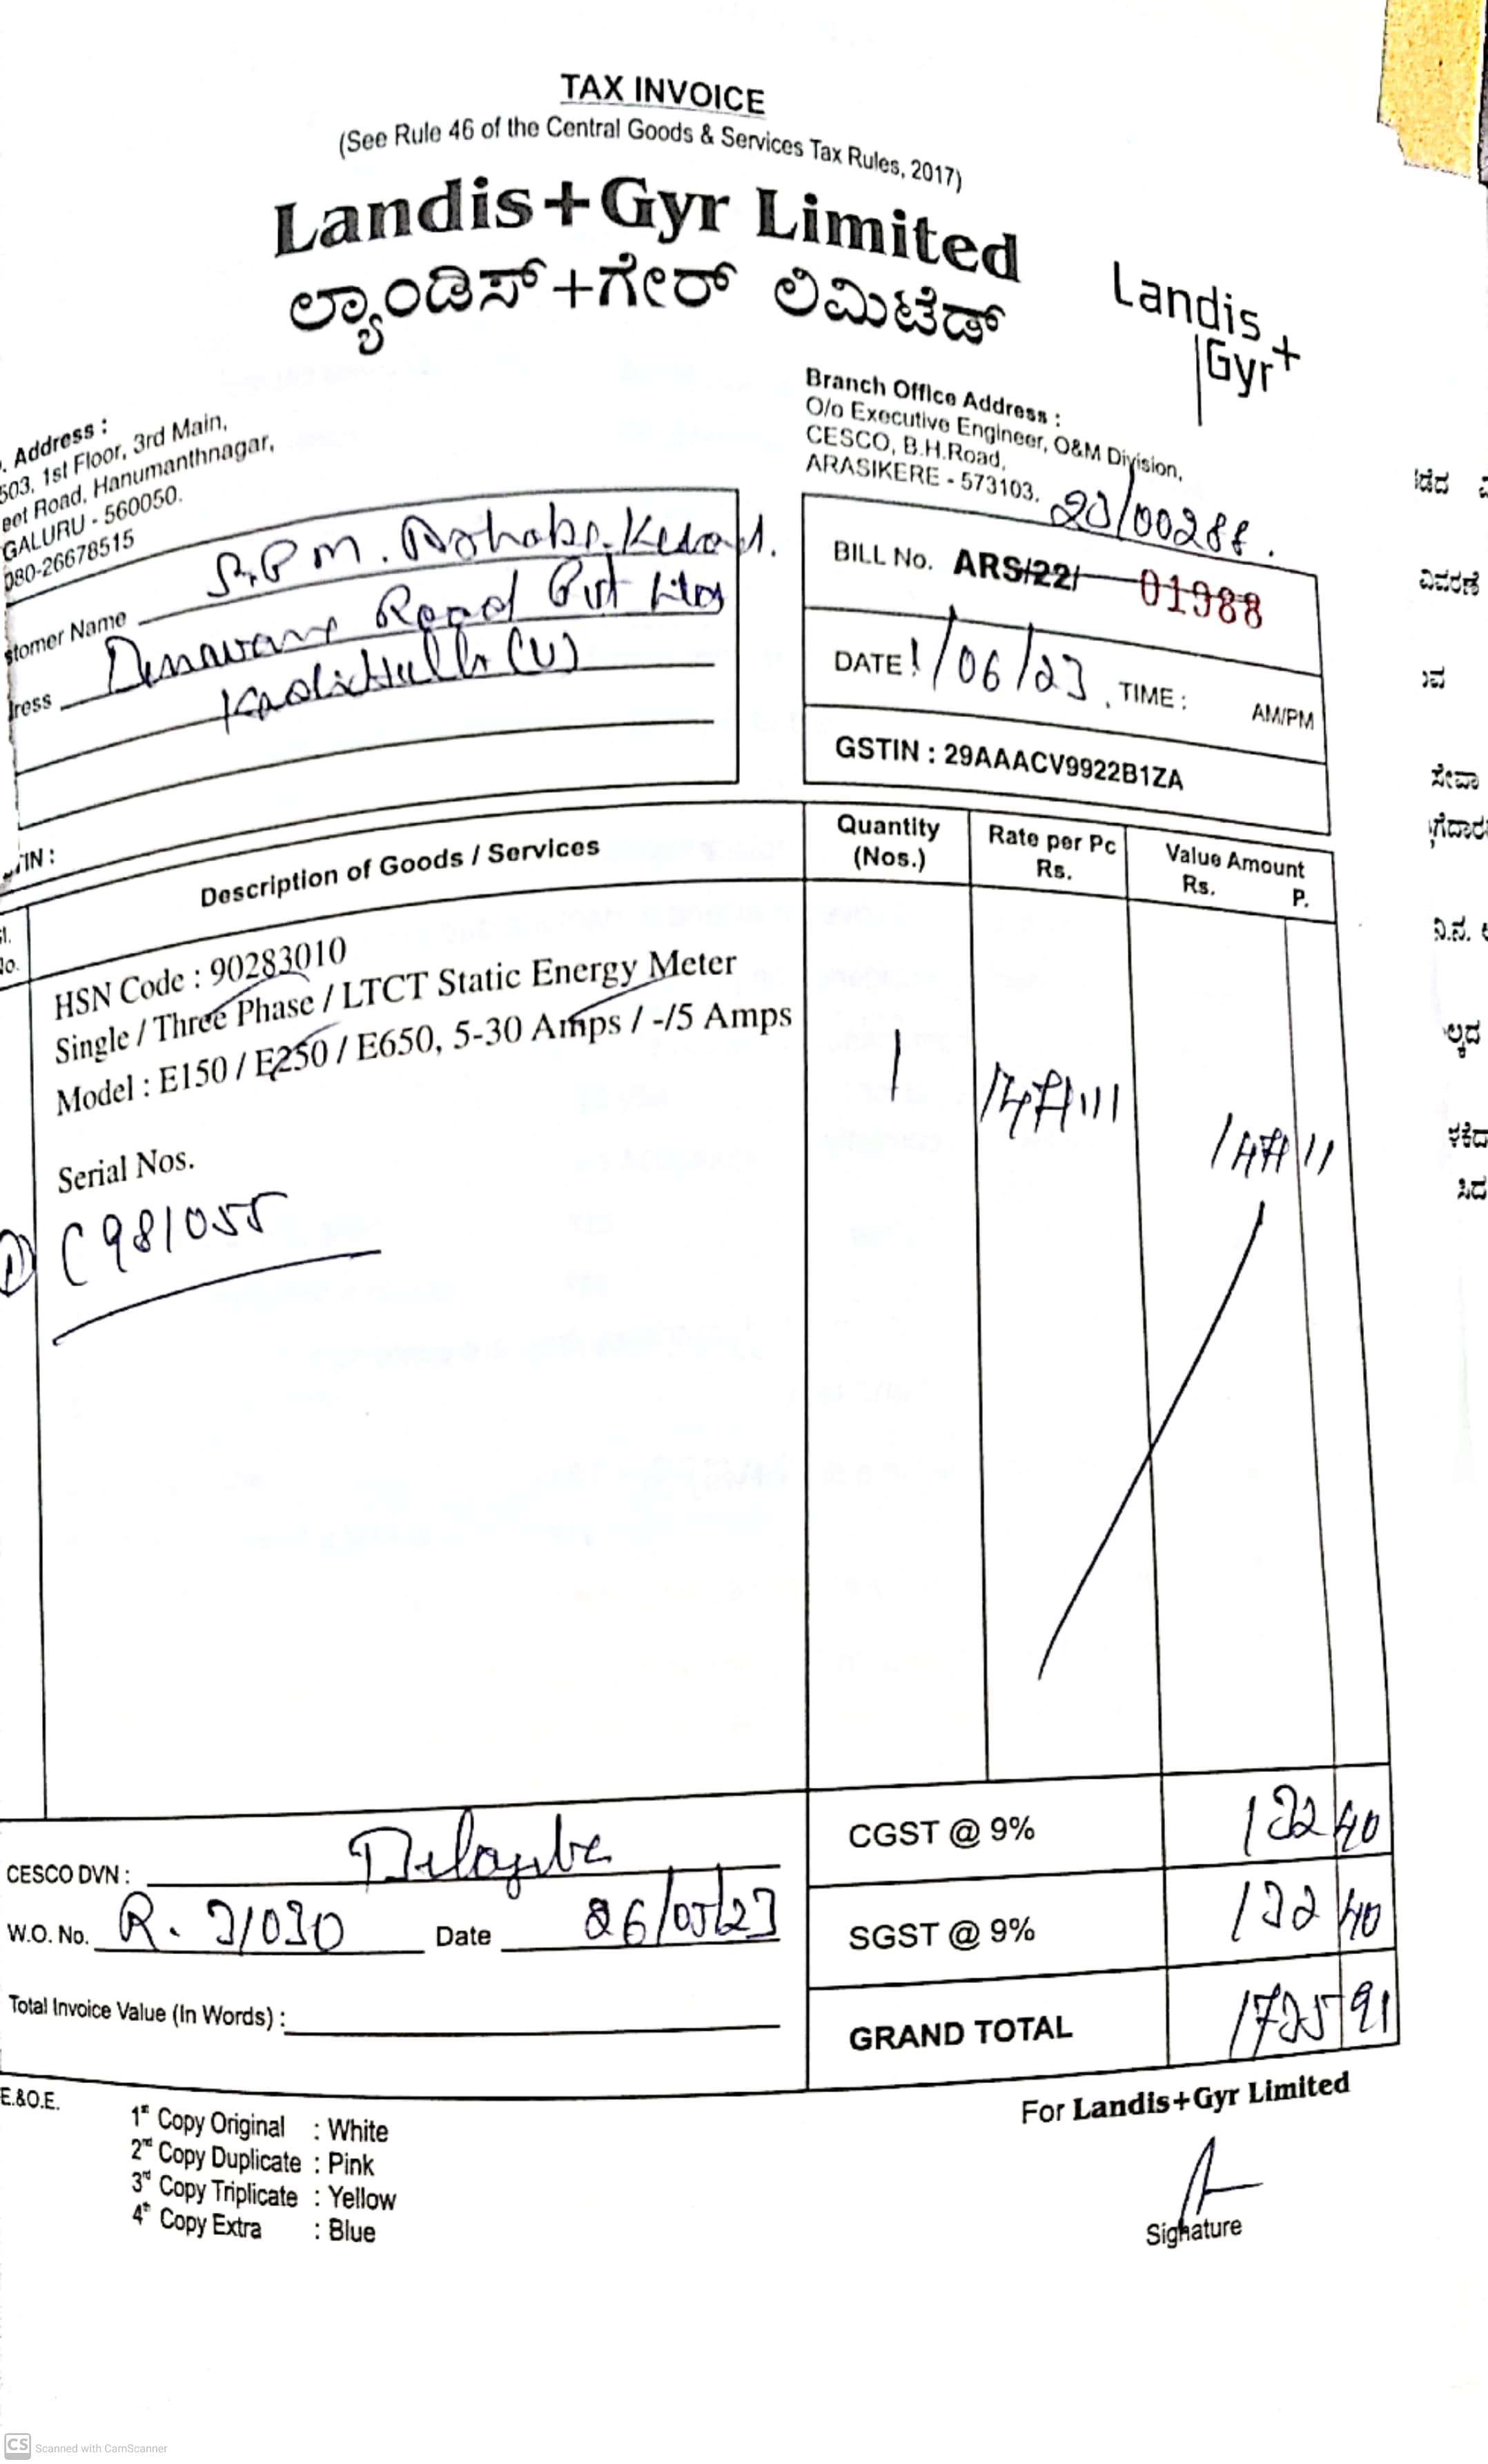 TAX INVOICE
(See Rule 46 of the Central Goods & Services Tax Rules, 2017)
Landis+Gyr Limited
ಲ್ಯಾಂಡಿಸ್+ಗೇರ್ ಲಿಮಿಟೆಡ್
Landis+
Gyr+
. Address :
503, 1st Floor, 3rd Main,
eet Road, Hanumanthnagar,
GALURU - 560050.
080-26678515
Branch Office Address :
O/o Executive Engineer, O&M Division,
CESCO, B.H.Road,
ARASIKERE - 573103.
23/00288.
BILL No. ARS/22/ 01988
DATE 1/06/23, TIME : AM/PM
GSTIN : 29AAACV9922B1ZA
stomer Name
Road Pvt Ltd
ress
TIN :
Sl. No. Description of Goods / Services Quantity (Nos.) Rate per Pc Rs. Value Amount Rs. P.
HSN Code : 90283010
Single / Three Phase / LTCT Static Energy Meter
Model : E150 / E250 / E650, 5-30 Amps / -/5 Amps
1 1471.11 1471 11
Serial Nos.
1) C981055
CGST @ 9% 132 40
SGST @ 9% 132 40
GRAND TOTAL 1735 91
CESCO DVN :
W.O. No. R. 31030 Date 26/05/23
Total Invoice Value (In Words) :
E.&O.E.
1st Copy Original : White
2nd Copy Duplicate : Pink
3rd Copy Triplicate : Yellow
4th Copy Extra : Blue
For Landis+Gyr Limited
Signature
ವಿವರಣೆ
ಸೇವಾ
CS Scanned with CamScanner